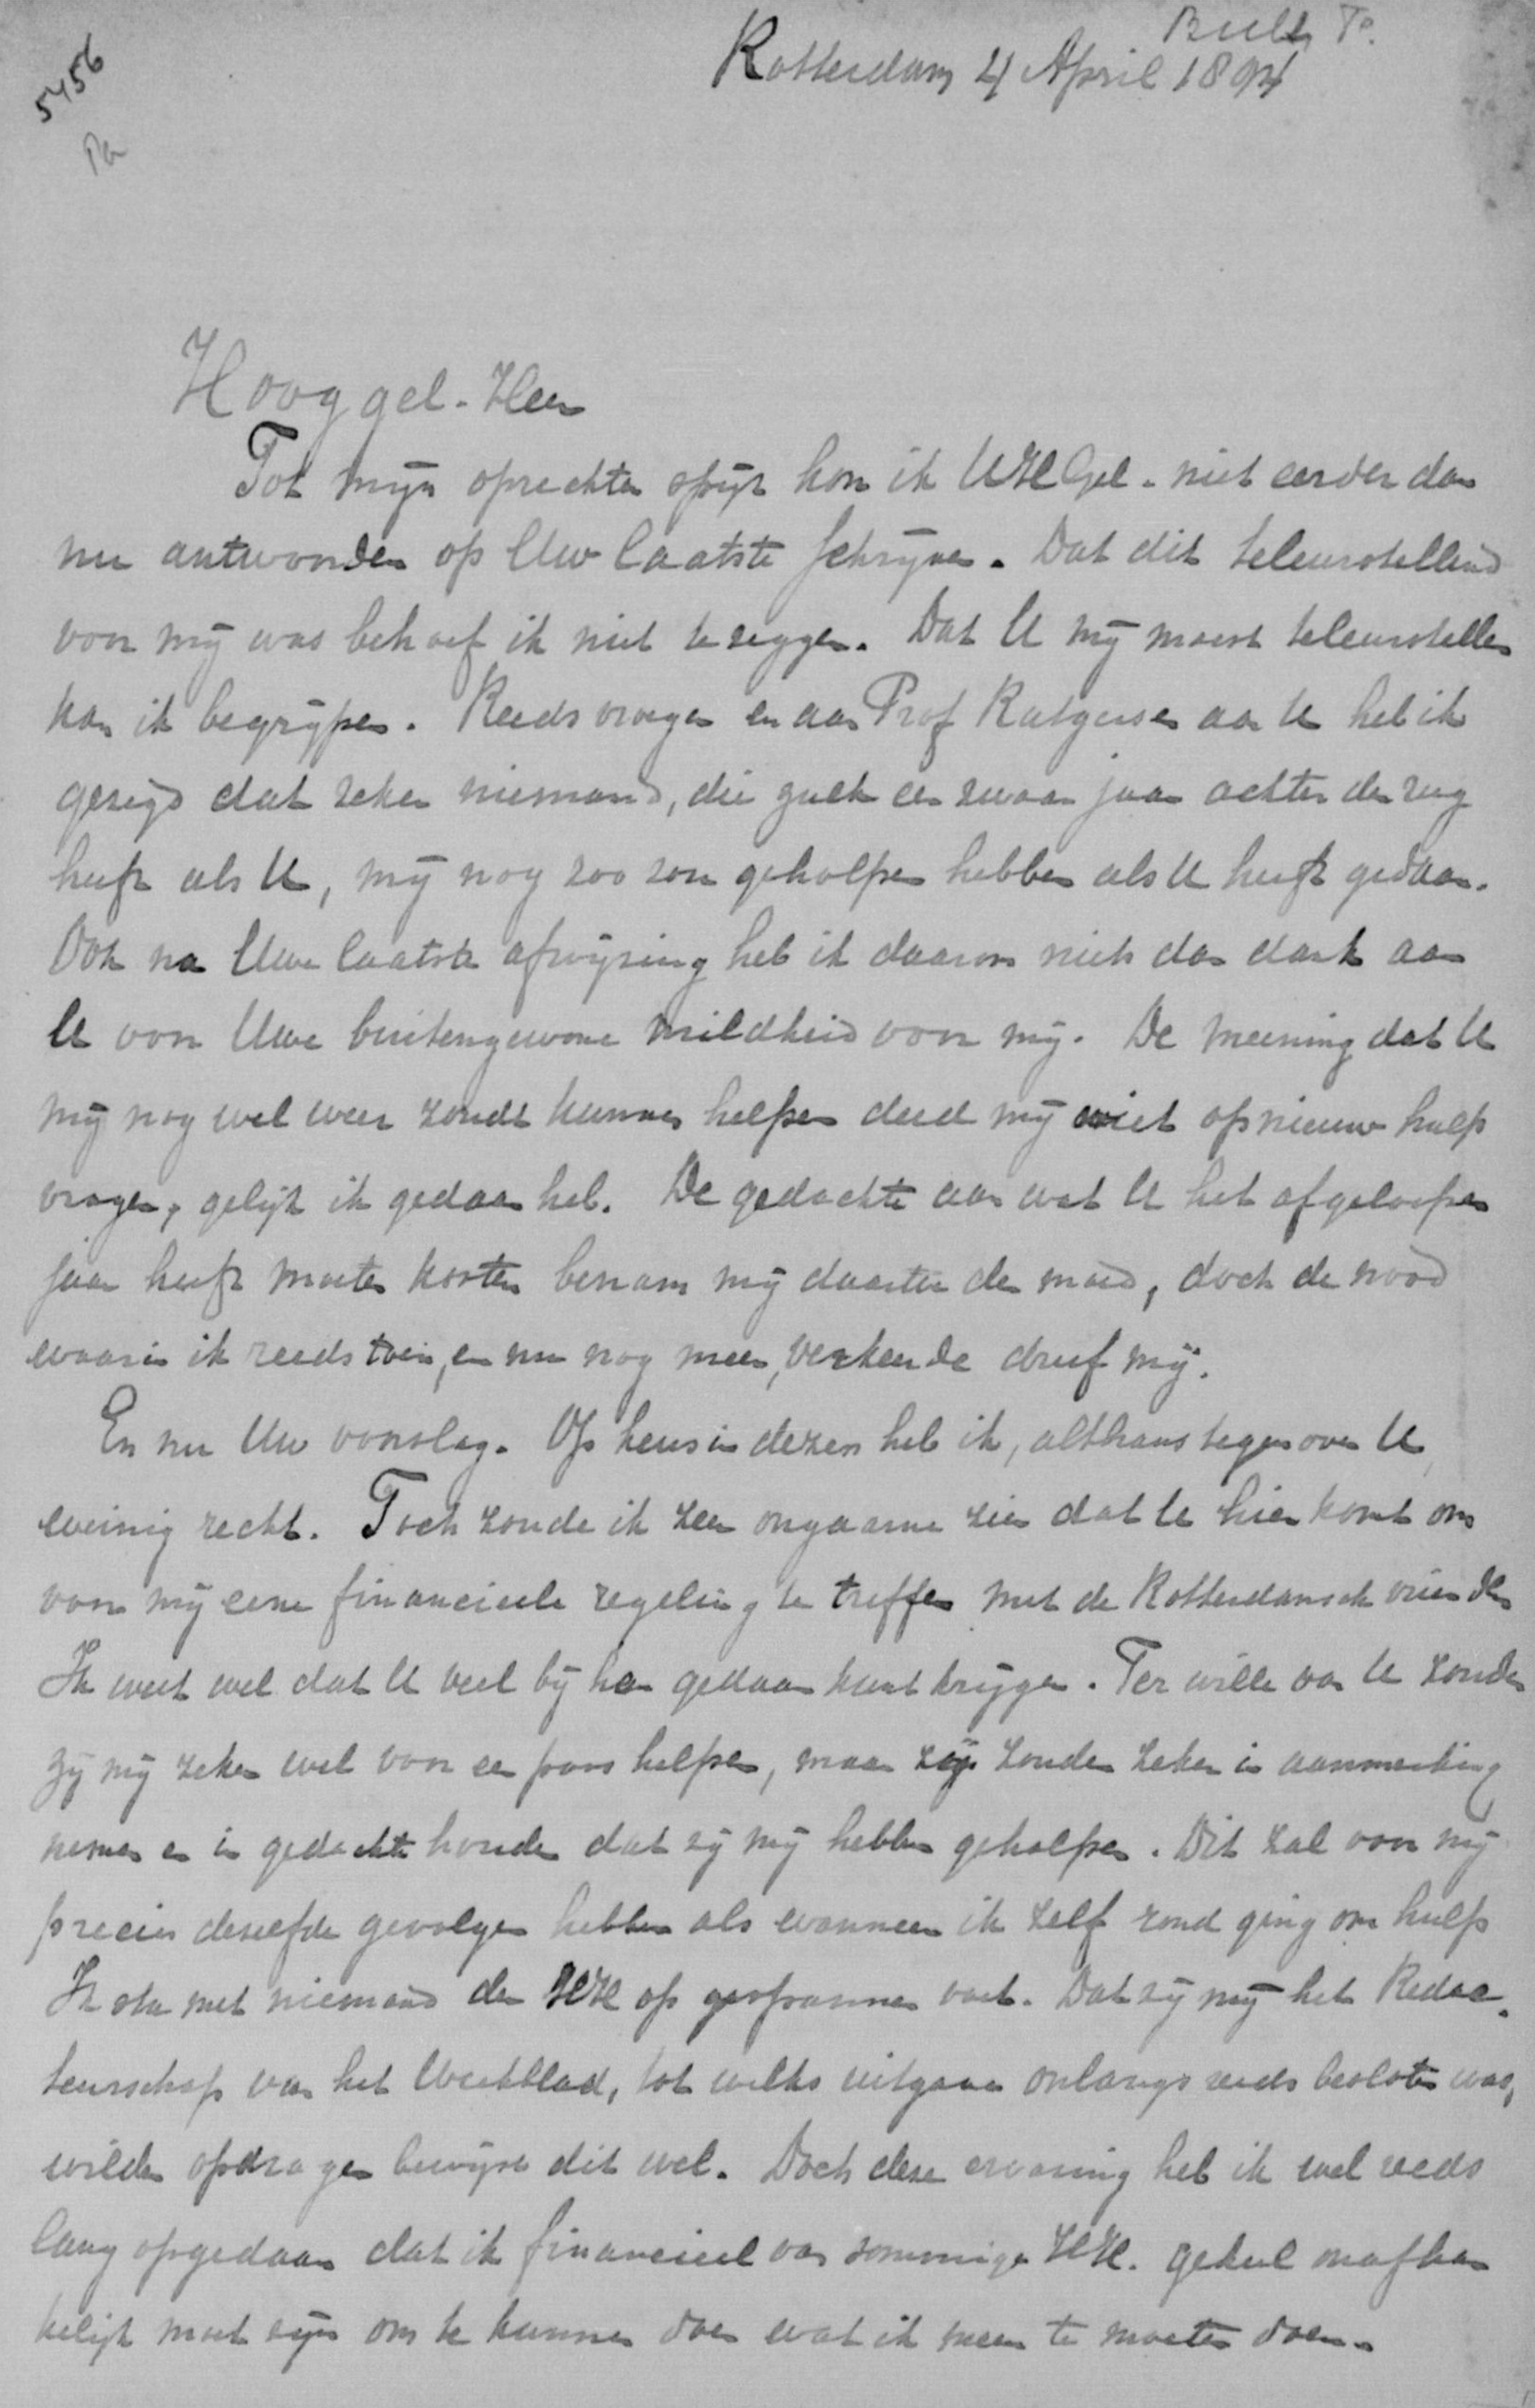 5456
Rotterdam 4 April 1894
Hooggel. Heer
Tot mijn oprechten spijt kon ik UHGel. niet eerder dan
nu antwoorden op Uw laatste schrijven. Dat dit teleurstellend
voor mij was behoef ik niet te zeggen. Dat U mij moest teleurstellen
kan ik begrijpen. Reeds vroeger en aan Prof Rutgers en aan U heb ik
gezegd dat zeker niemand, die zulk een zwaar jaar achter den rug
heeft als U, mij nog zoo zou geholpen hebben als U heeft gedaan.
Ook na Uwe laatste afwijzing heb ik daarom niets dan dank aan
U voor Uwe buitengewone mildheid voor mij. De meening dat U
mij nog wel weer zoudt kunnen helpen deed mij niet opnieuw hulp
vragen, gelijk ik gedaan heb. De gedachte aan wat U het afgeloopen
jaar heeft moeten kosten benam mij daartoe den moed, doch de nood
waarin ik reeds toen, en nu nog meer, verkeerde dreef mij.
En nu Uw voorslag. Op keus in dezen heb ik, althans tegenover U,
weinig recht. Toch zoude ik zeer ongaarne zien dat U hier komt om
voor mij eene financieele regeling te treffen met de Rotterdamsche vrienden
Ik weet wel dat U veel bij hen gedaan kunt krijgen. Ter wille van U zouden
zij mij zeker wel voor een poos helpen, maar zij zouden zeker in aanmerking
nemen en in gedachte houden dat zij mij hebben geholpen. Dit zal voor mij
precies dezelfde gevolgen hebben als wanneer ik zelf rond ging om hulp
Ik sta met niemand der HH op gespannen voet. Dat zij mij het Redac-
teurschap van het Weekblad, tot welks uitgave onlangs reeds besloten was,
wilden opdragen bewijst dit wel. Doch deze ervaring heb ik wel reeds
lang opgedaan dat ik financieel van sommige HH. geheel onafhan
kelijk moet zijn om te kunnen doen wat ik meen te moeten doen.